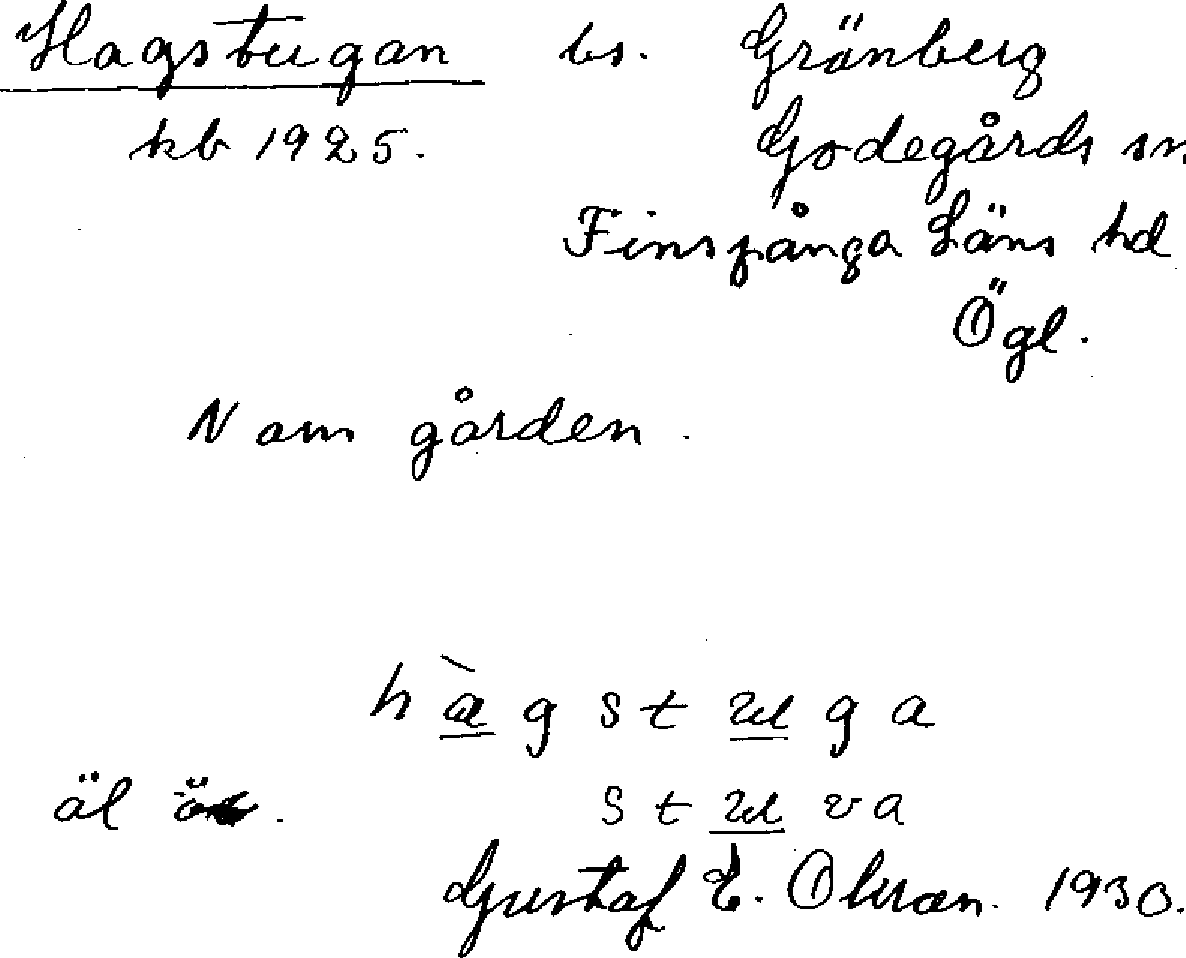 Hagstugan bs. Gränberg
kb 1925. Godegårds sn
Finspånga Läns hd
Ögl.
N om gården.
hàgstuga
äl ä. stuva
Gustaf E. Olwan. 1930.